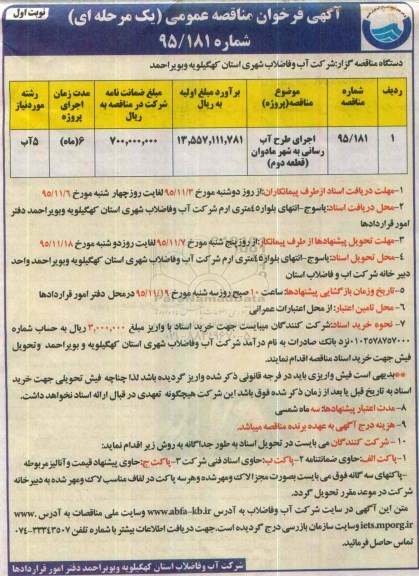 نوبت اول
آگهی فرخوان مناقصه عمومی (یک مرحله ای)
شماره ۹۵/۱۸۱
دستگاه مناقصه گزار: شرکت آب وفاضلاب شهری استان کهگیلویه وبویراحمد
ردیف
شماره مناقصه
موضوع مناقصه(پروژه)
برآورد مبلغ اولیه به ریال
مبلغ ضمانت نامه شرکت در مناقصه به ریال
مدت زمان اجرای پروژه
رشته موردنیاز
۱
۹۵/۱۸۱
اجرای طرح آب رسانی به شهر مادوان (قطعه دوم)
۱۳,۵۵۷,۱۱۱,۷۸۱
۷۰۰,۰۰۰,۰۰۰
۶(ماه)
۵آب
۱-مهلت دریافت اسناد ازطرف پیمانکاران:از روز دوشنبه مورخ ۹۵/۱۱/۳ لغایت روزچهار شنبه مورخ ۹۵/۱۱/۶
۲-محل دریافت اسناد: یاسوج-انتهای بلوار۴۵متری ارم شرکت آب وفاضلاب شهری استان کهگیلویه وبویراحمد دفتر
امور قراردادها
۳-مهلت تحویل پیشنهادها از طرف پیمانکار:از روزپنج شنبه مورخ ۹۵/۱۱/۷ لغایت روزدو شنبه مورخ ۹۵/۱۱/۱۸
۴-محل تحویل اسناد: یاسوج-انتهای بلوار۴۵متری ارم شرکت آب وفاضلاب شهری استان کهگیلویه وبویراحمد واحد
دبیر خانه شرکت اب و فاضلاب استان
۵-تاریخ وزمان بازگشایی پیشنهادها: ساعت ۱۰ صبح روزسه شنبه مورخ ۹۵/۱۱/۱۹ درمحل دفتر امور قراردادها
۶-محل تامین اعتبار: از محل اعتبارات عمرانی
۷- نحوه خرید اسناد: شرکت کنندگان میبایست جهت خرید اسناد با واریز مبلغ ۳,۰۰۰,۰۰۰ ریال به حساب شماره
۰۱۰۲۵۷۸۷۵۷۰۰۰ نزد بانک صادرات به نام درآمد شرکت آب وفاضلاب شهری استان کهگیلویه و بویراحمد وتحویل
فیش جهت خرید اسناد مناقصه اقدام نمایند.
**بدیهی است فیش واریزی باید در فرجه قانونی ذکر شده واریز گردیده باشد لذا چنانچه فیش تحویلی جهت خرید
اسناد به تاریخ قبل یا بعد از زمان ذکر شده فوق باشد این شرکت هیچگونه تعهدی در قبال ارائه اسناد نخواهد داشت.
۸-مدت اعتبار پیشنهادها: سه ماه شمسی
۹-هزینه درج آگهی به عهده برنده مناقصه میباشد.
۱۰-شرکت کنندگان می بایست در تحویل اسناد به طور جداگانه به روش زیر اقدام نماید:
۱-پاکت الف:حاوی ضمانتنامه ۲-پاکت ب: حاوی اسناد فنی شرکت ۳-پاکت ج: حاوی پیشنهاد قیمت و آنالیز مربوطه
-پاکتهای سه گانه فوق می بایست بصورت مجزا لاک ومهرشده وهرسه پاکت در لفاف مناسب لاک ومهر شده به دبیرخانه
شرکت در موعد مقرر تحویل گردد.
متن این آگهی در سایت شرکت آب وفاضلاب به آدرس www.abfa-kb.ir وسایت ملی مناقصات به آدرس www.
iets.mporg.ir وسایت سازمان بازرسی درج گردیده است.جهت دریافت اطلاعات بیشتر با شماره تلفن ۳۳۳۴۳۵۰۷-۰۷۴
تماس حاصل فرمائید.
شرکت آب وفاضلاب استان کهگیلویه وبویراحمد دفتر امور قراردادها